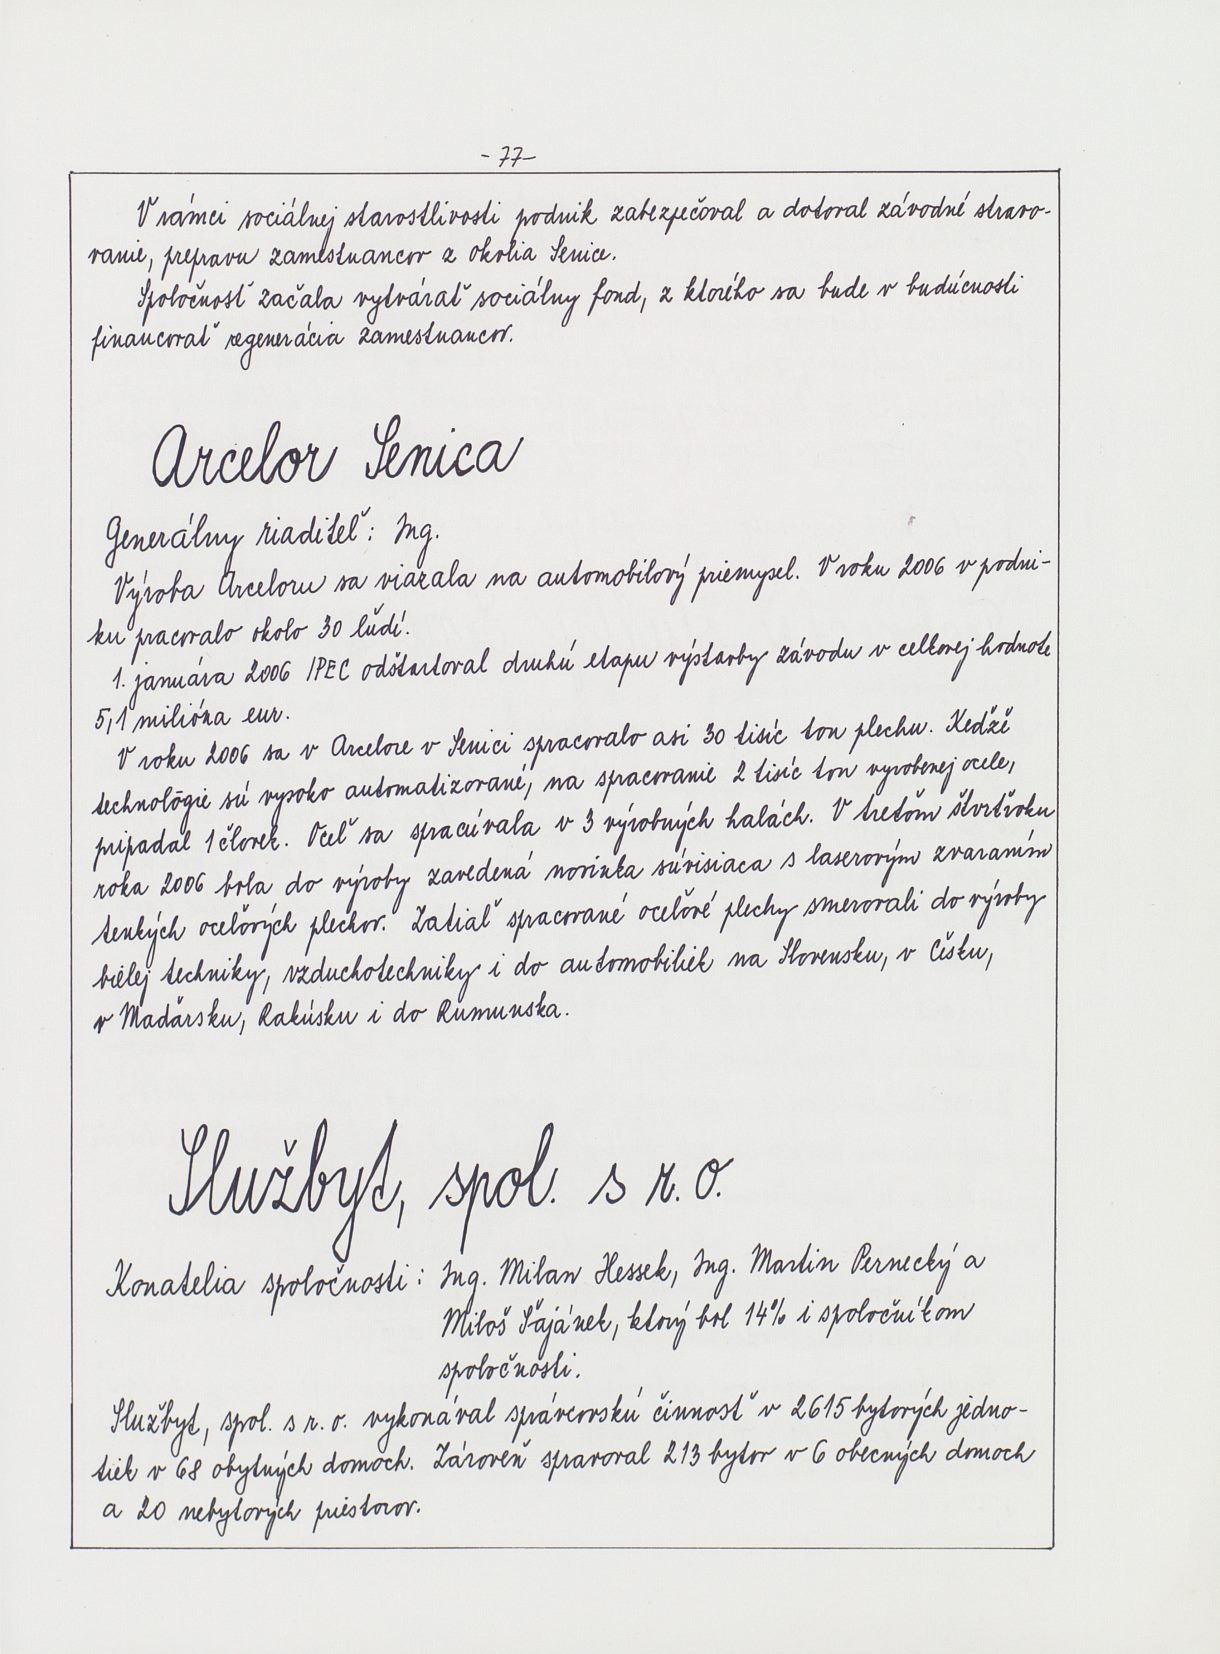 - 77 -
V rámci sociálnej starostlivosti podnik zabezpečoval a dotoval závodné stravo-
vanie, prepravu zamestnancov z okolia Senice.
Spoločnosť začala vytvárať sociálny fond, z ktorého sa bude v budúcnosti
financovať regenerácia zamestnancov.
Arcelor Senica
Generálny riaditeľ: Ing.
Výroba Arceloru sa viazala na automobilový priemysel. V roku 2006 v podni-
ku pracovalo okolo 30 ľudí.
1. januára 2006 IPEC odštartoval druhú etapu výstavby závodu v celkovej hodnote
5,1 milióna eur.
V roku 2006 sa v Arcelore v Senici spracovalo asi 30 tisíc ton plechu. Keďže
technológie sú vysoko automatizované, na spracovanie 2 tisíc ton vyrobenej ocele,
pripadal 1 človek. Oceľ sa spracúvala v 3 výrobných halách. V treťom štvrťroku
roka 2006 bola do výroby zavedená novinka súvisiaca s laserovým zvaraním
tenkých oceľových plechov. Zatiaľ spracované oceľové plechy smerovali do výroby
bielej techniky, vzduchotechniky i do automobiliek na Slovensku, v Česku,
v Maďarsku, Rakúsku i do Rumunska.
Službyt, spol. s r. o.
Konatelia spoločnosti: Ing. Milan Hessek, Ing. Martin Pernecký a
Miloš Šajánek, ktorý bol 14% i spoločníkom
spoločnosti.
Službyt, spol. s r. o. vykonával správcovskú činnosť v 2615 bytových jedno-
tiek v 68 obytných domoch. Zároveň spravoval 213 bytov v 6 obecných domoch
a 20 nebytových priestorov.